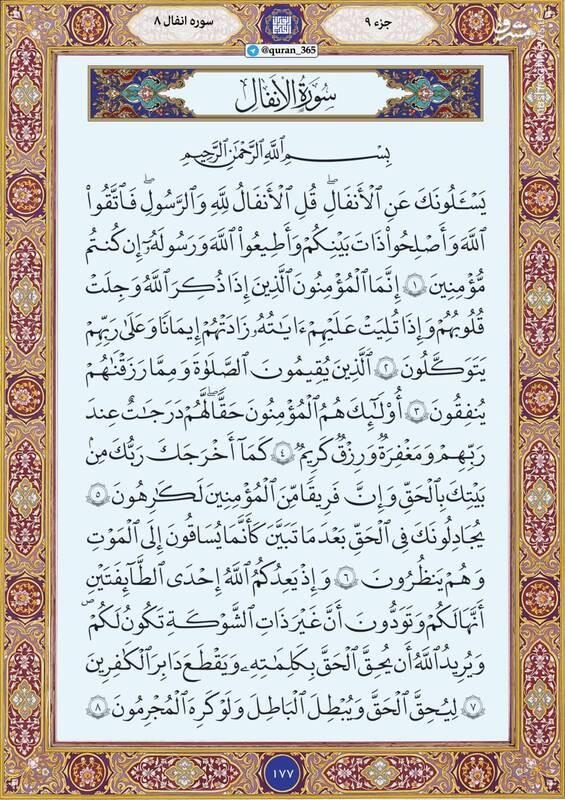 سوره انفال ۸
جزء ۹
مشرق
@quran_365
سُورَةُ الأَنفَال
بِسْمِ ٱللَّهِ ٱلرَّحْمَٰنِ ٱلرَّحِيمِ
يَسْـَٔلُونَكَ عَنِ ٱلْأَنفَالِۖ قُلِ ٱلْأَنفَالُ لِلَّهِ وَٱلرَّسُولِۖ فَٱتَّقُوا۟
ٱللَّهَ وَأَصْلِحُوا۟ ذَاتَ بَيْنِكُمْۖ وَأَطِيعُوا۟ ٱللَّهَ وَرَسُولَهُۥٓ إِن كُنتُم
مُّؤْمِنِينَ ١ إِنَّمَا ٱلْمُؤْمِنُونَ ٱلَّذِينَ إِذَا ذُكِرَ ٱللَّهُ وَجِلَتْ
قُلُوبُهُمْ وَإِذَا تُلِيَتْ عَلَيْهِمْ ءَايَٰتُهُۥ زَادَتْهُمْ إِيمَٰنًا وَعَلَىٰ رَبِّهِمْ
يَتَوَكَّلُونَ ٢ ٱلَّذِينَ يُقِيمُونَ ٱلصَّلَوٰةَ وَمِمَّا رَزَقْنَٰهُمْ
يُنفِقُونَ ٣ أُو۟لَٰٓئِكَ هُمُ ٱلْمُؤْمِنُونَ حَقًّاۚ لَّهُمْ دَرَجَٰتٌ عِندَ
رَبِّهِمْ وَمَغْفِرَةٌ وَرِزْقٌ كَرِيمٌ ٤ كَمَآ أَخْرَجَكَ رَبُّكَ مِنۢ
بَيْتِكَ بِٱلْحَقِّ وَإِنَّ فَرِيقًا مِّنَ ٱلْمُؤْمِنِينَ لَكَٰرِهُونَ ٥
يُجَٰدِلُونَكَ فِى ٱلْحَقِّ بَعْدَ مَا تَبَيَّنَ كَأَنَّمَا يُسَاقُونَ إِلَى ٱلْمَوْتِ
وَهُمْ يَنظُرُونَ ٦ وَإِذْ يَعِدُكُمُ ٱللَّهُ إِحْدَى ٱلطَّآئِفَتَيْنِ
أَنَّهَا لَكُمْ وَتَوَدُّونَ أَنَّ غَيْرَ ذَاتِ ٱلشَّوْكَةِ تَكُونُ لَكُمْ
وَيُرِيدُ ٱللَّهُ أَن يُحِقَّ ٱلْحَقَّ بِكَلِمَٰتِهِۦ وَيَقْطَعَ دَابِرَ ٱلْكَٰفِرِينَ
٧ لِيُحِقَّ ٱلْحَقَّ وَيُبْطِلَ ٱلْبَٰطِلَ وَلَوْ كَرِهَ ٱلْمُجْرِمُونَ ٨
١٧٧